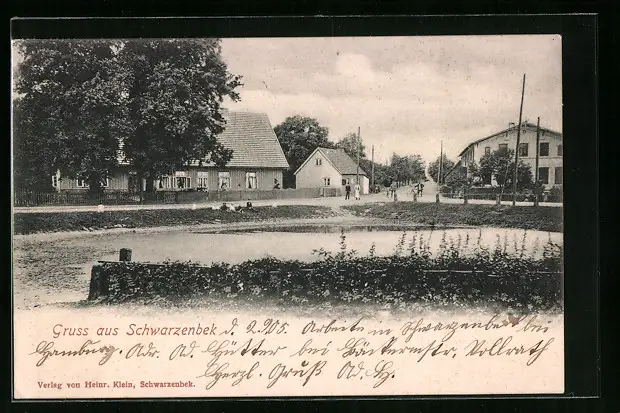 Gruss aus Schwarzenbek d. 2.9.05. Arbeite in Schwarzenbek bei
Hamburg. Adr. Ad. Hütter bei Bäckermstr. Vollrath
Herzl. Gruß Ad. H.
Verlag von Heinr. Klein, Schwarzenbek.